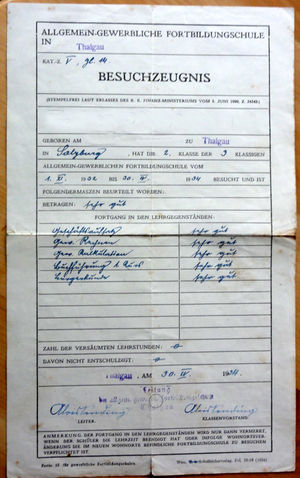 ALLGEMEIN-GEWERBLICHE FORTBILDUNGSSCHULE
IN Thalgau
KAT.-Z. V, gl. 14
BESUCHZEUGNIS
(STEMPELFREI LAUT ERLASS DES K. K. FINANZ-MINISTERIUMS VOM
GEBOREN AM ZU Thalgau
IN Salzburg, HAT DIE 2. KLASSE DER 3 KLASSIGEN
ALLGEMEIN-GEWERBLICHEN FORTBILDUNGSSCHULE VOM
1. XI. BIS 30. IV. 1934 BESUCHT UND IST
FOLGENDERMASZEN BEURTEILT WORDEN:
BETRAGEN: sehr gut
FORTGANG IN DEN LEHRGEGENSTÄNDEN:
Geschäftsaufsatz sehr gut
Gew. Rechnen sehr gut
Gew. Kalkulation sehr gut
Buchführung 1. Kurs sehr gut
Bürgerkunde sehr gut
ZAHL DER VERSÄUMTEN LEHRSTUNDEN: 0
DAVON NICHT ENTSCHULDIGT: 0
Thalgau, AM 30. IV. 1934.
Leitung
LEITER. KLASSENVORSTAND.
ANMERKUNG. DER FORTGANG IN DEN LEHRGEGENSTÄNDEN WIRD NUR DANN VERMERKT,
WENN DER SCHÜLER DIE LEHRZEIT BEENDIGT HAT ODER INFOLGE WOHNORTSVER-
ÄNDERUNG DIE IM NEUEN WOHNORTE BEFINDLICHE FORTBILDUNGSSCHULE ZU BESUCHEN
VERPFLICHTET IST.